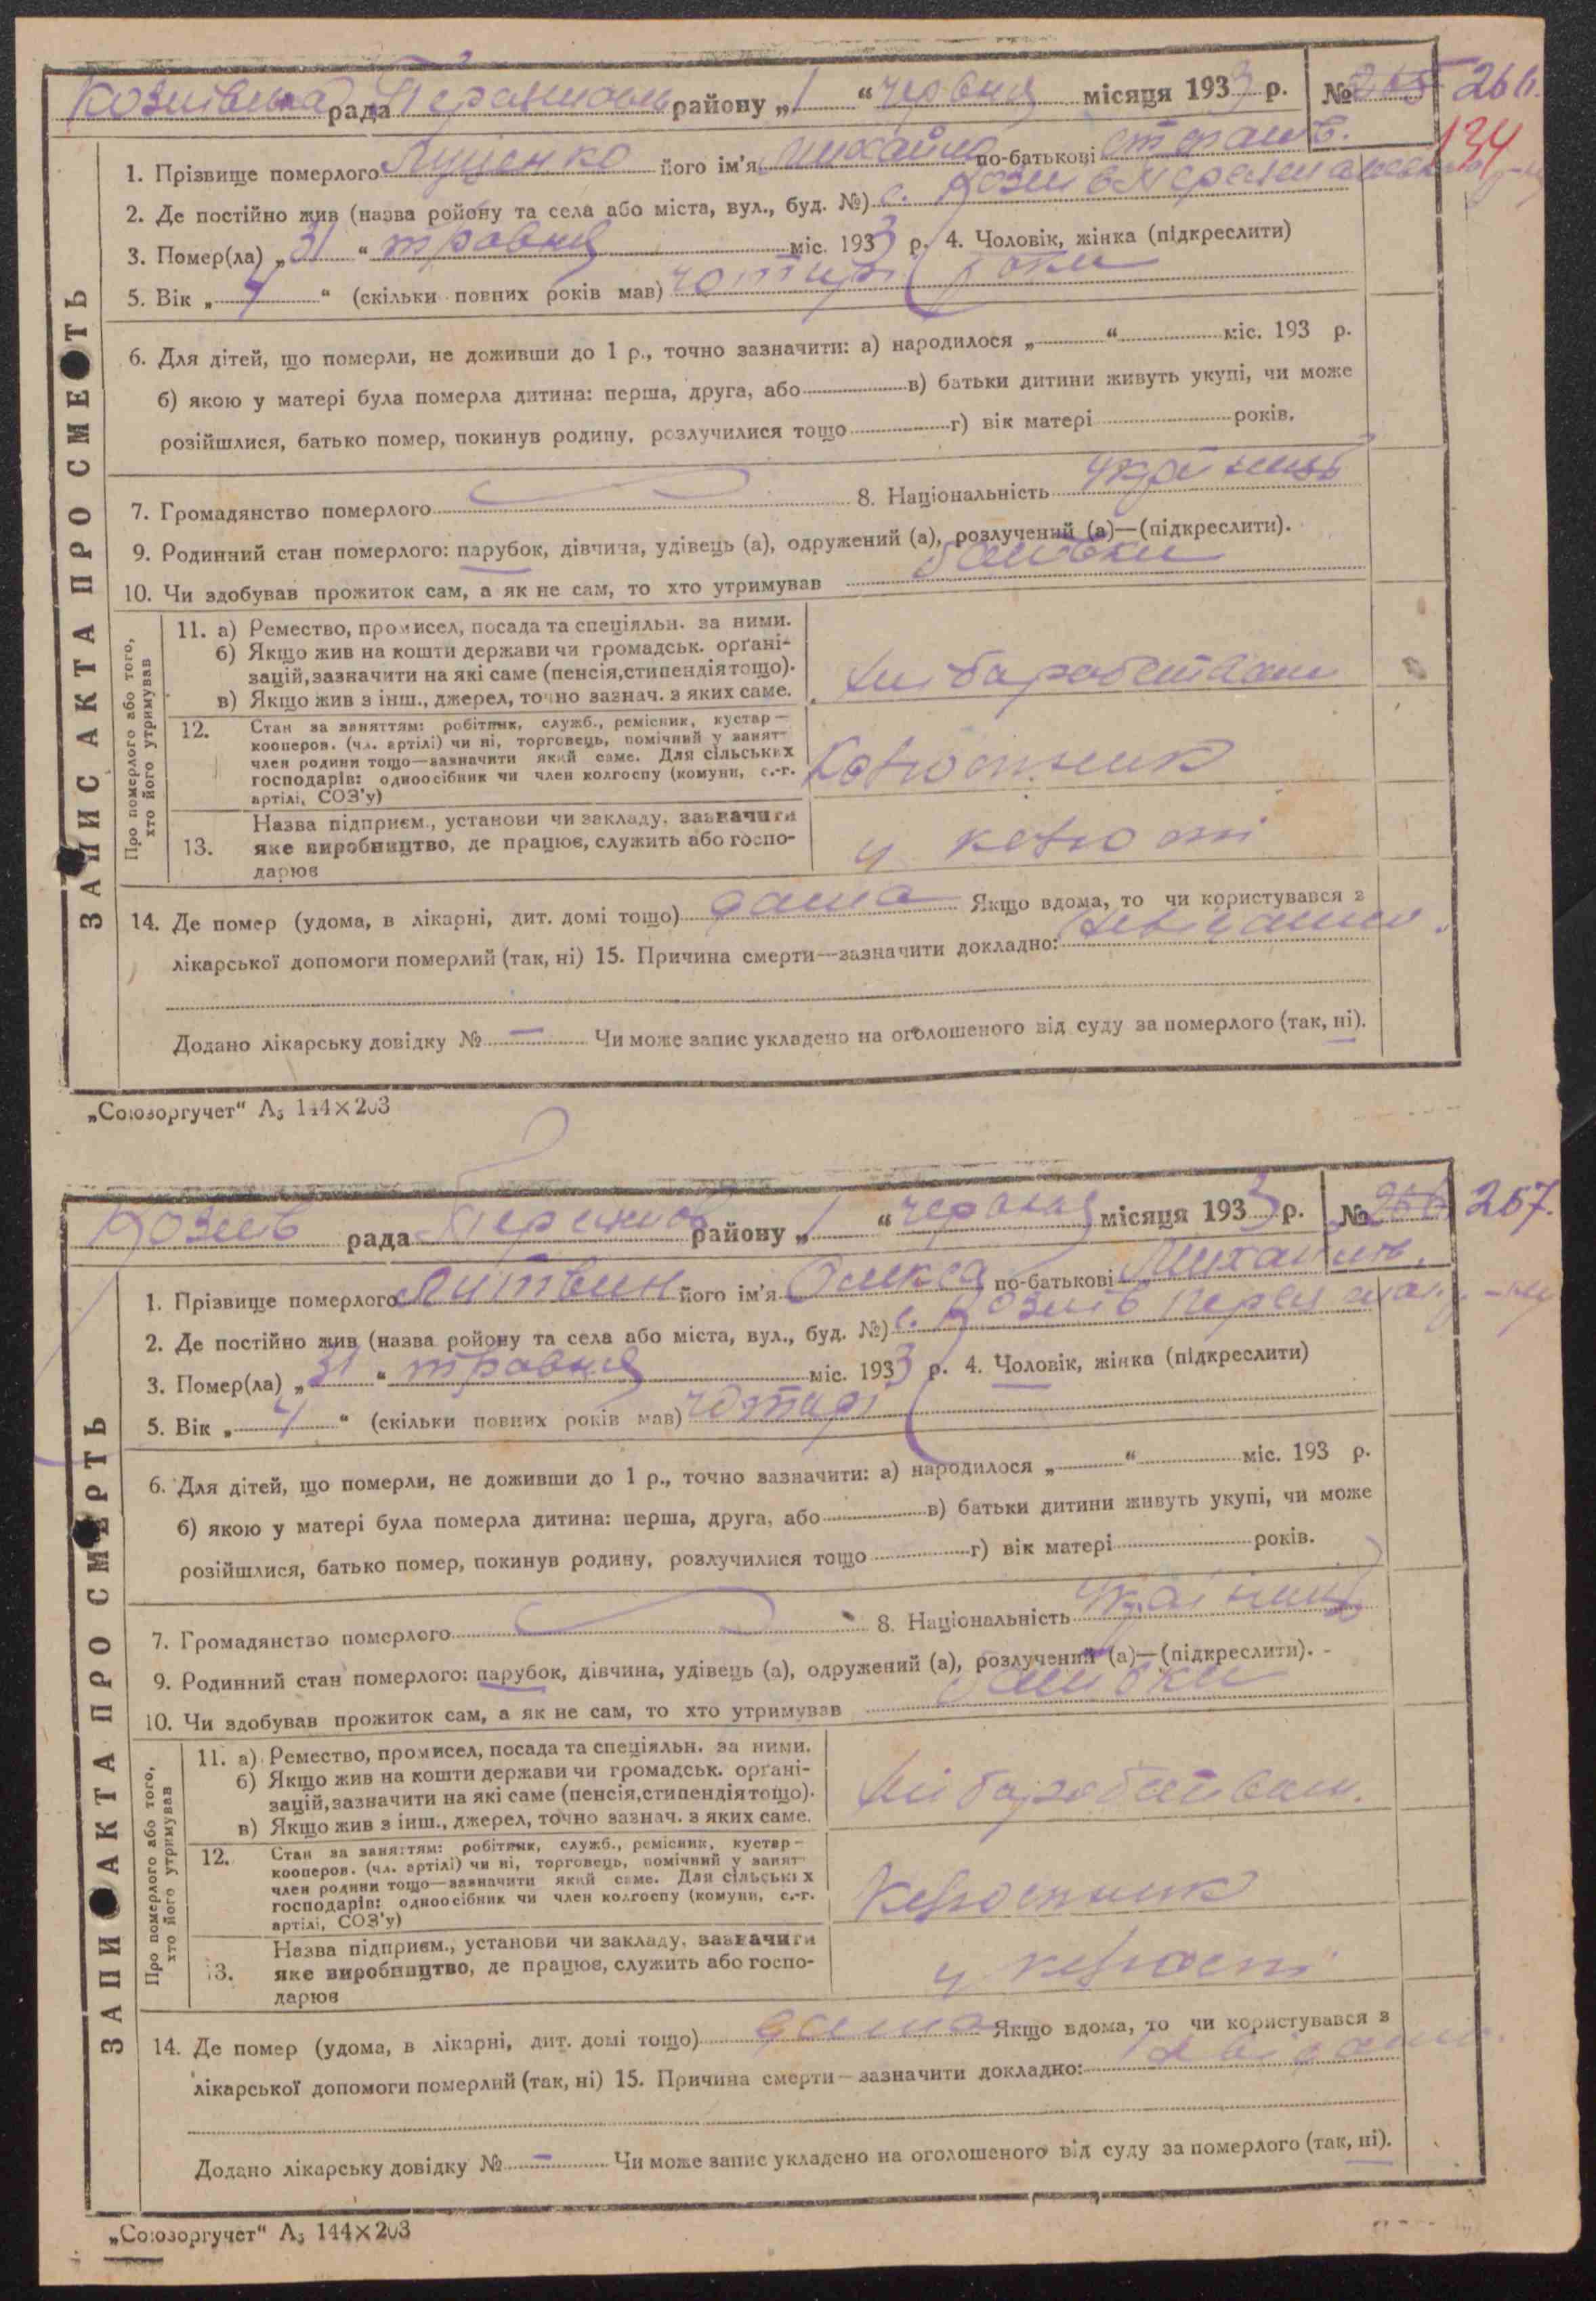 рада району „1“ червня місяця 1933 р. № 265 266.
134
1. Прізвище померлого Луценко його ім'я Михайло по-батькові
2. Де постійно жив (назва ройону та села або міста, вул., буд. №) с.
3. Помер(ла) „31“ травня міс. 1933 р. 4. Чоловік, жінка (підкреслити)
5. Вік „4“ (скільки повних років мав) чотирі роки
6. Для дітей, що померли, не доживши до 1 р., точно зазначити: а) народилося „ “ міс. 193 р.
б) якою у матері була померла дитина: перша, друга, або в) батьки дитини живуть укупі, чи може
розійшлися, батько помер, покинув родину, розлучилися тощо г) вік матері років.
7. Громадянство померлого 8. Національність українець
9. Родинний стан померлого: парубок, дівчина, удівець (а), одружений (а), розлучений (а)—(підкреслити).
10. Чи здобував прожиток сам, а як не сам, то хто утримував батьки
ЗАПИС АКТА ПРО СМЕРТЬ
Про померлого або того,
хто його утримував
11. а) Ремество, промисел, посада та спеціяльн. за ними.
б) Якщо жив на кошти держави чи громадськ. орґані-
зацій, зазначити на які саме (пенсія, стипендія тощо).
в) Якщо жив з інш., джерел, точно зазнач. з яких саме.
хліборобством
12. Стан за заняттям: робітник, служб., ремісник, кустар —
кооперов. (чл. артілі) чи ні, торговець, помічний у занят-
член родини тощо—зазначити який саме. Для сільських
господарів: одноосібник чи член колгоспу (комуни, с.-г.
артілі, СОЗ'у)
13. Назва підприєм., установи чи закладу, зазначити
яке виробництво, де працює, служить або госпо-
дарює
у
14. Де помер (удома, в лікарні, дит. домі тощо) дома Якщо вдома, то чи користувався з
лікарської допомоги померлий (так, ні) 15. Причина смерти—зазначити докладно:
Додано лікарську довідку № — Чи може запис укладено на оголошеного від суду за померлого (так, ні).
„Союзоргучет“ А₅ 144×203
рада району „1“ червня місяця 1933 р. № 266 267.
1. Прізвище померлого Литвин його ім'я Олекса по-батькові
2. Де постійно жив (назва ройону та села або міста, вул., буд. №) с.
3. Помер(ла) „31“ травня міс. 1933 р. 4. Чоловік, жінка (підкреслити)
5. Вік „4“ (скільки повних років мав) чотирі
6. Для дітей, що померли, не доживши до 1 р., точно зазначити: а) народилося „ “ міс. 193 р.
б) якою у матері була померла дитина: перша, друга, або в) батьки дитини живуть укупі, чи може
розійшлися, батько помер, покинув родину, розлучилися тощо г) вік матері років.
7. Громадянство померлого 8. Національність українець
9. Родинний стан померлого: парубок, дівчина, удівець (а), одружений (а), розлучений (а)—(підкреслити).
10. Чи здобував прожиток сам, а як не сам, то хто утримував батьки
ЗАПИС АКТА ПРО СМЕРТЬ
Про померлого або того,
хто його утримував
11. а) Ремество, промисел, посада та спеціяльн. за ними.
б) Якщо жив на кошти держави чи громадськ. орґані-
зацій, зазначити на які саме (пенсія, стипендія тощо).
в) Якщо жив з інш., джерел, точно зазнач. з яких саме.
хліборобством.
12. Стан за заняттям: робітник, служб., ремісник, кустар —
кооперов. (чл. артілі) чи ні, торговець, помічний у занят-
член родини тощо—зазначити який саме. Для сільських
господарів: одноосібник чи член колгоспу (комуни, с.-г.
артілі, СОЗ'у)
13. Назва підприєм., установи чи закладу, зазначити
яке виробництво, де працює, служить або госпо-
дарює
у
14. Де помер (удома, в лікарні, дит. домі тощо) дома Якщо вдома, то чи користувався з
лікарської допомоги померлий (так, ні) 15. Причина смерти—зазначити докладно:
Додано лікарську довідку № — Чи може запис укладено на оголошеного від суду за померлого (так, ні).
„Союзоргучет“ А₅ 144×203